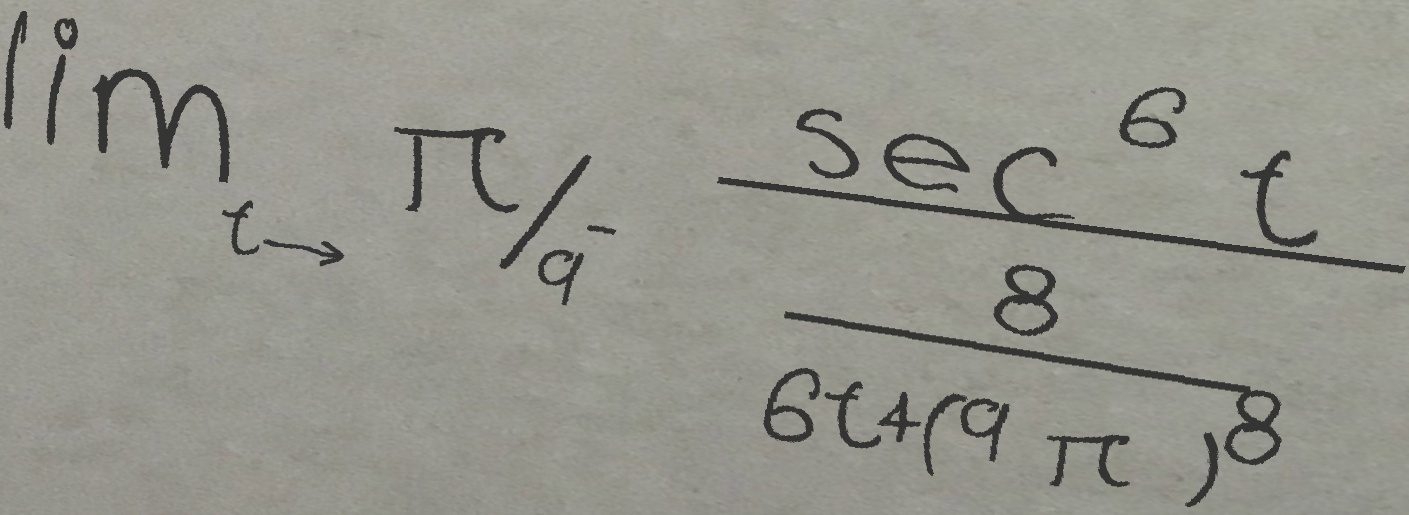 \lim_{t \to \pi/9^-} \frac{\sec^6 t}{\frac{8}{6t+(9\pi)^8}}